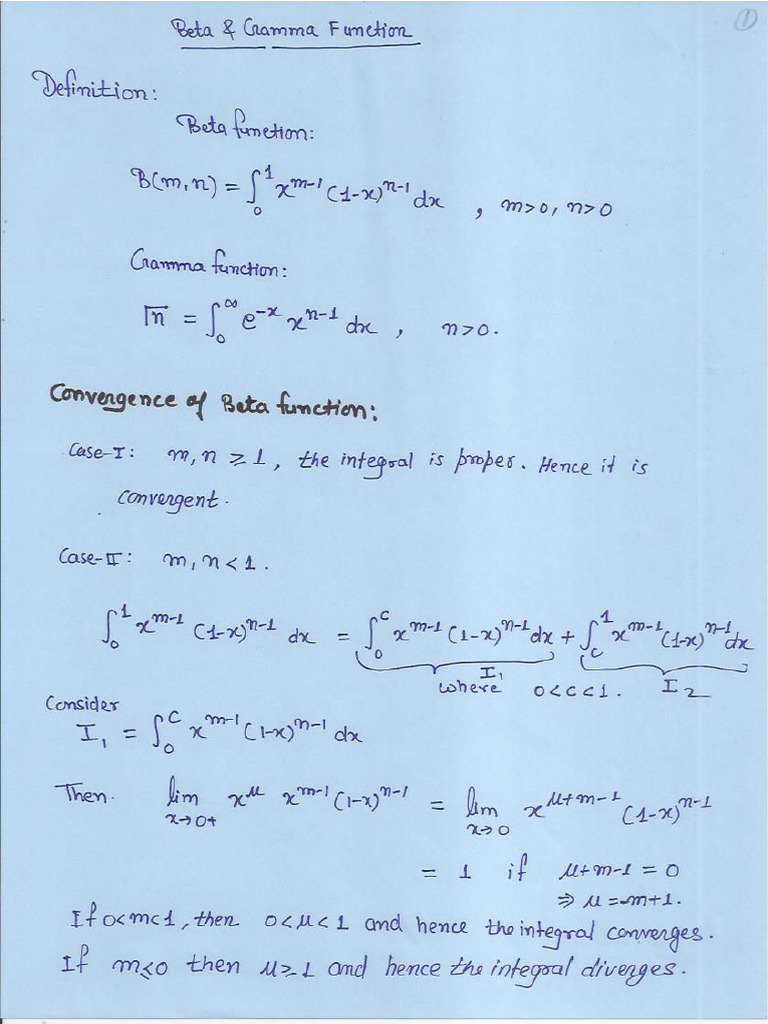 ①
Beta & Gamma Function
Definition:
Beta function:
B(m,n) = ∫₀¹ x^{m-1} (1-x)^{n-1} dx , m>0, n>0
Gamma function:
Γn = ∫₀^∞ e^{-x} x^{n-1} dx , n>0.
Convergence of Beta function:
Case-I: m, n ≥ 1, the integral is proper. Hence it is
convergent.
Case-II: m, n < 1.
∫₀¹ x^{m-1} (1-x)^{n-1} dx = ∫₀^c x^{m-1} (1-x)^{n-1} dx + ∫_c¹ x^{m-1} (1-x)^{n-1} dx
I₁ I₂
where 0<c<1.
Consider
I₁ = ∫₀^c x^{m-1} (1-x)^{n-1} dx
Then. lim_{x→0+} x^μ x^{m-1} (1-x)^{n-1} = lim_{x→0} x^{μ+m-1} (1-x)^{n-1}
= 1 if μ+m-1 = 0
⇒ μ = -m+1.
If 0<m<1, then 0<μ<1 and hence the integral converges.
If m≤0 then μ≥1 and hence the integral diverges.